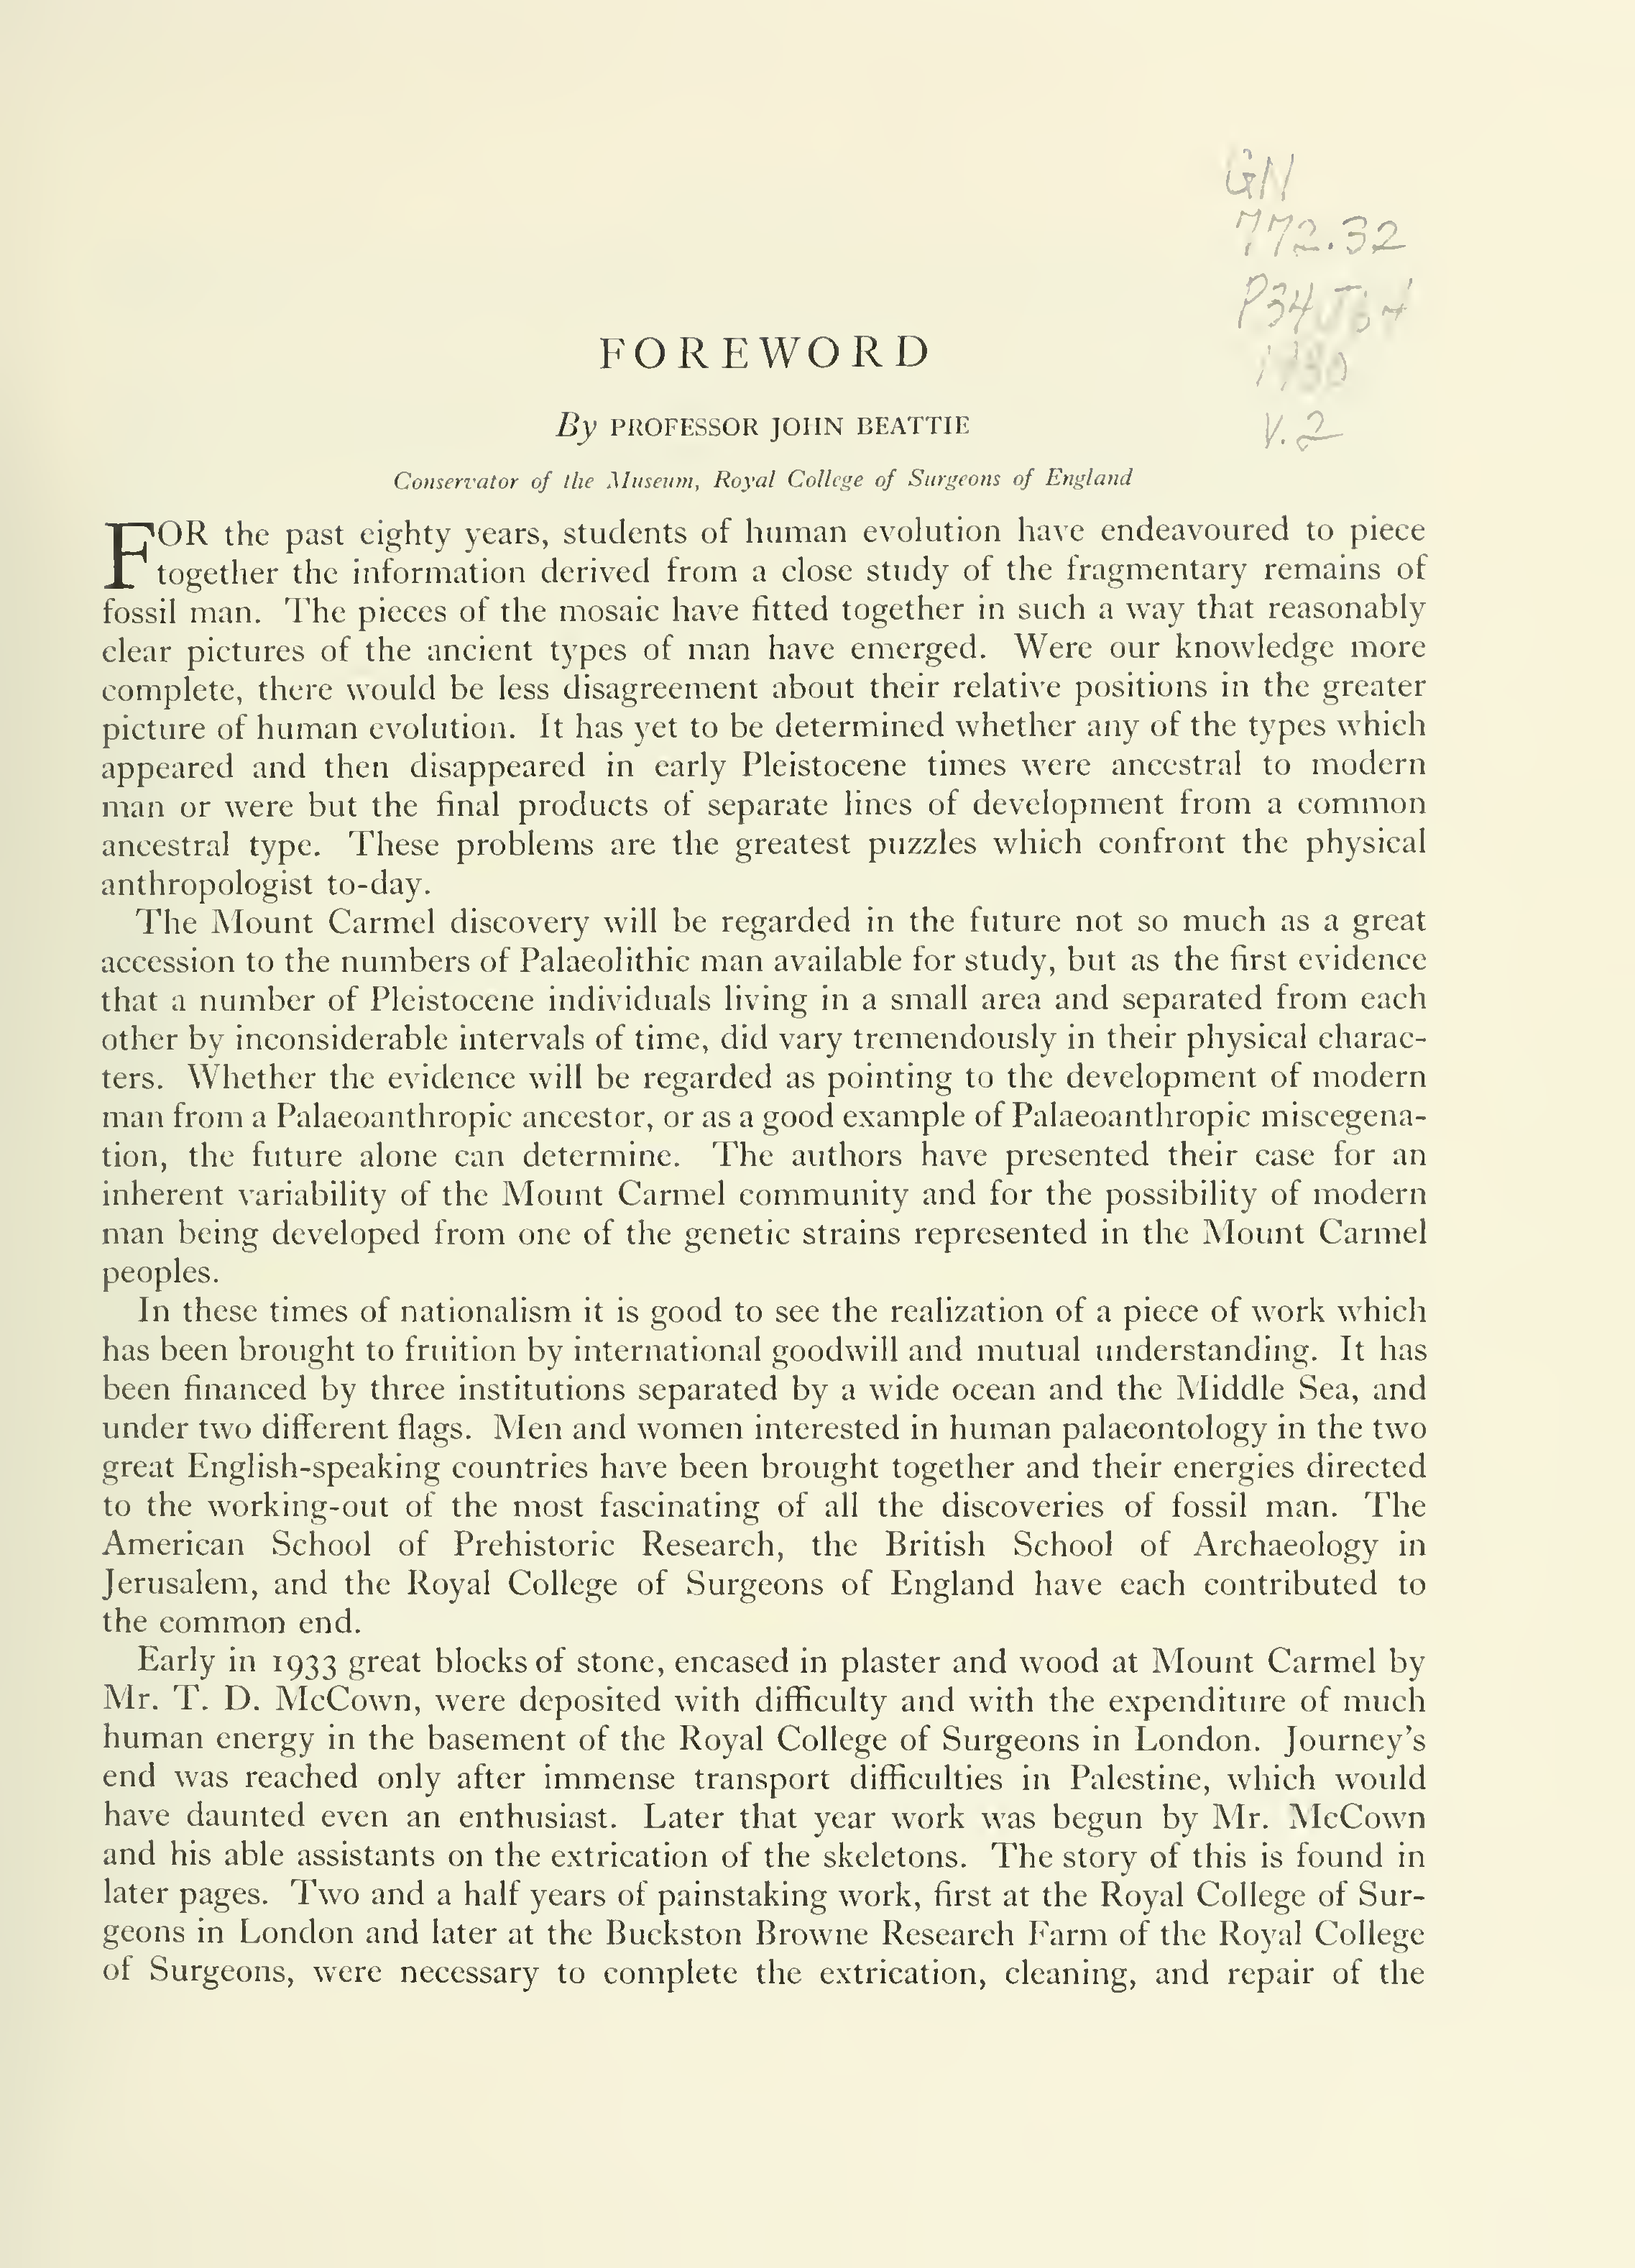 GN
772.32
1980
V.2
FOREWORD
By PROFESSOR JOHN BEATTIE
Conservator of the Museum, Royal College of Surgeons of England
FOR the past eighty years, students of human evolution have endeavoured to piece
together the information derived from a close study of the fragmentary remains of
fossil man. The pieces of the mosaic have fitted together in such a way that reasonably
clear pictures of the ancient types of man have emerged. Were our knowledge more
complete, there would be less disagreement about their relative positions in the greater
picture of human evolution. It has yet to be determined whether any of the types which
appeared and then disappeared in early Pleistocene times were ancestral to modern
man or were but the final products of separate lines of development from a common
ancestral type. These problems are the greatest puzzles which confront the physical
anthropologist to-day.
The Mount Carmel discovery will be regarded in the future not so much as a great
accession to the numbers of Palaeolithic man available for study, but as the first evidence
that a number of Pleistocene individuals living in a small area and separated from each
other by inconsiderable intervals of time, did vary tremendously in their physical charac-
ters. Whether the evidence will be regarded as pointing to the development of modern
man from a Palaeoanthropic ancestor, or as a good example of Palaeoanthropic miscegena-
tion, the future alone can determine. The authors have presented their case for an
inherent variability of the Mount Carmel community and for the possibility of modern
man being developed from one of the genetic strains represented in the Mount Carmel
peoples.
In these times of nationalism it is good to see the realization of a piece of work which
has been brought to fruition by international goodwill and mutual understanding. It has
been financed by three institutions separated by a wide ocean and the Middle Sea, and
under two different flags. Men and women interested in human palaeontology in the two
great English-speaking countries have been brought together and their energies directed
to the working-out of the most fascinating of all the discoveries of fossil man. The
American School of Prehistoric Research, the British School of Archaeology in
Jerusalem, and the Royal College of Surgeons of England have each contributed to
the common end.
Early in 1933 great blocks of stone, encased in plaster and wood at Mount Carmel by
Mr. T. D. McCown, were deposited with difficulty and with the expenditure of much
human energy in the basement of the Royal College of Surgeons in London. Journey's
end was reached only after immense transport difficulties in Palestine, which would
have daunted even an enthusiast. Later that year work was begun by Mr. McCown
and his able assistants on the extrication of the skeletons. The story of this is found in
later pages. Two and a half years of painstaking work, first at the Royal College of Sur-
geons in London and later at the Buckston Browne Research Farm of the Royal College
of Surgeons, were necessary to complete the extrication, cleaning, and repair of the